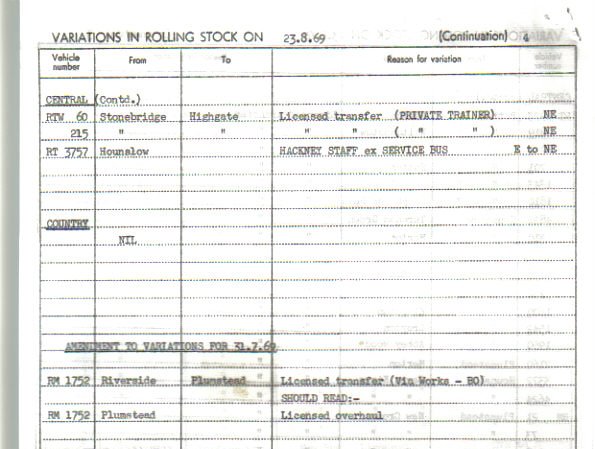 VARIATIONS IN ROLLING STOCK ON 23.8.69 (Continuation) 4
Vehicle number From To Reason for variation
CENTRAL (Contd.)
RTW 60 Stonebridge Highgate Licensed transfer (PRIVATE TRAINER) NE
215 " " " " ( " " ) NE
RT 3757 Hounslow HACKNEY STAFF ex SERVICE BUS E to NE
COUNTRY
NIL
AMENDMENT TO VARIATIONS FOR 31.7.69
RM 1752 Riverside Plumstead Licensed transfer (Via Works - BO)
SHOULD READ:-
RM 1752 Plumstead Licensed overhaul